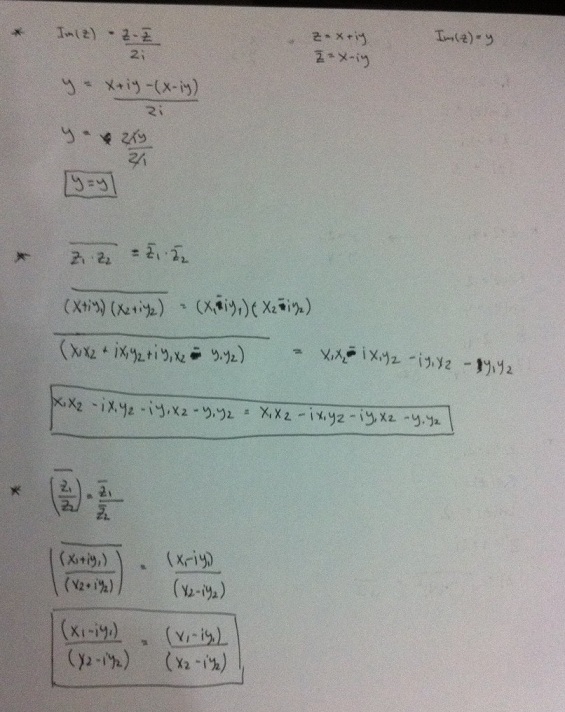 * Im(z) = z - z̅ / 2i z = x + iy Im(z) = y
z̅ = x - iy
y = x + iy - (x - iy) / 2i
y = 2iy / 2i
y = y
* \overline{z₁ · z₂} = z̅₁ · z̅₂
\overline{(x+iy₁)(x₂+iy₂)} = (x₁-iy₁)(x₂-iy₂)
\overline{(x₁x₂ + ix₁y₂ + iy₁x₂ - y₁y₂)} = x₁x₂ - ix₁y₂ - iy₁x₂ - y₁y₂
x₁x₂ - ix₁y₂ - iy₁x₂ - y₁y₂ = x₁x₂ - ix₁y₂ - iy₁x₂ - y₁y₂
* \overline{(z₁ / z₂)} = z̅₁ / z̅₂
\overline{((x₁+iy₁) / (x₂+iy₂))} = (x₁-iy₁) / (x₂-iy₂)
(x₁-iy₁) / (x₂-iy₂) = (x₁-iy₁) / (x₂-iy₂)